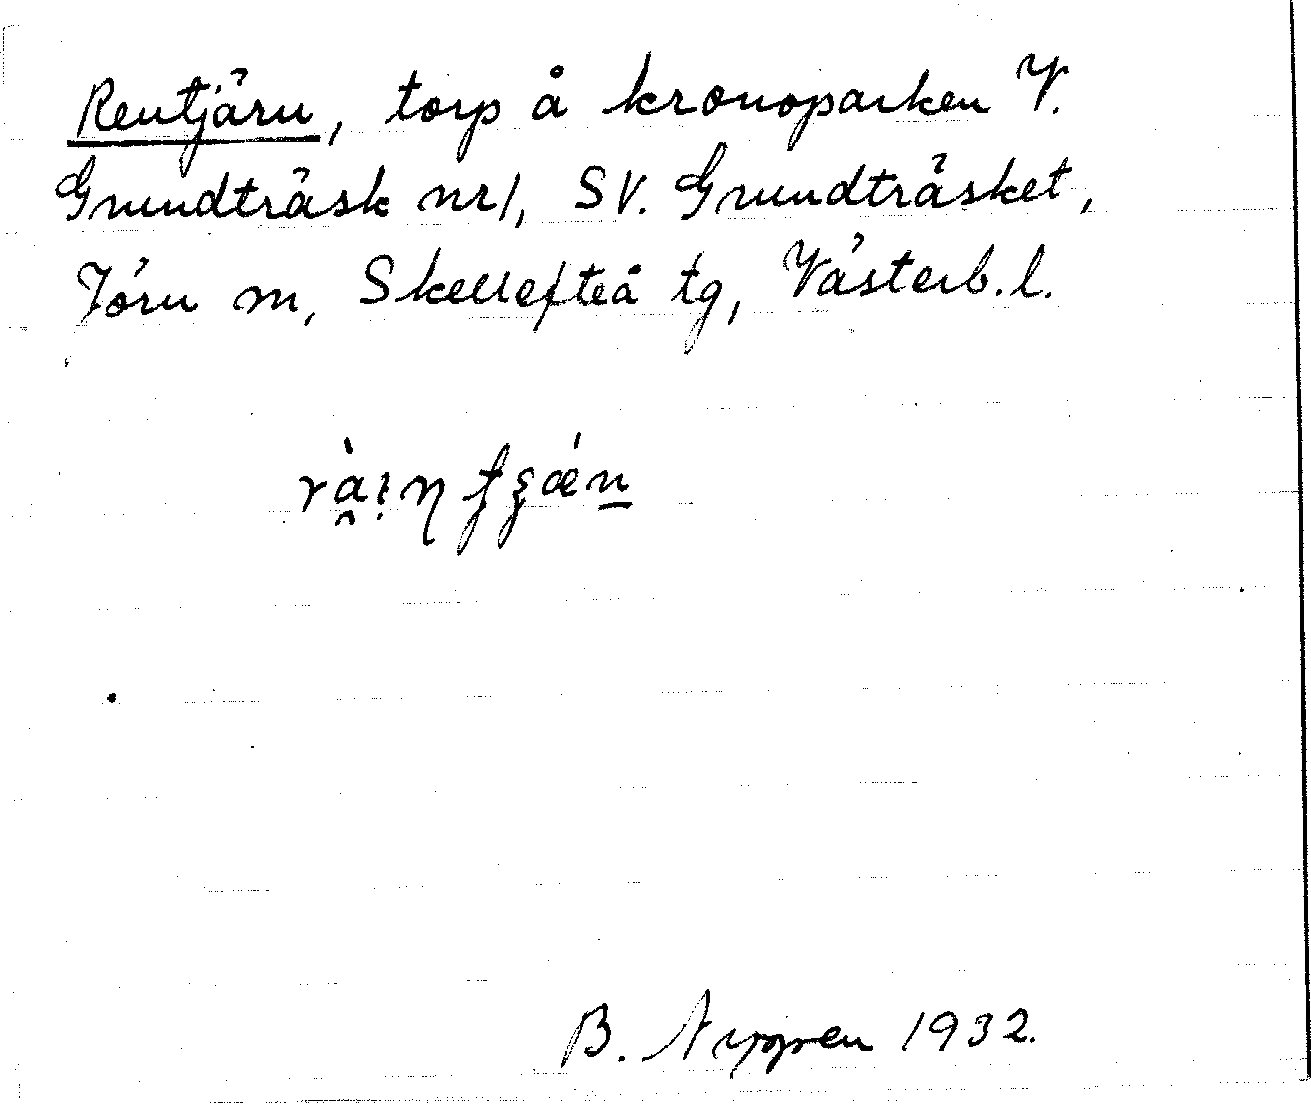 Rentjärn, torp å kronoparken V.
Grundträsk nr 1, SV. Grundträsket,
Jörn sn, Skellefteå tg, Västerb. l.
B. Nygren 1932.